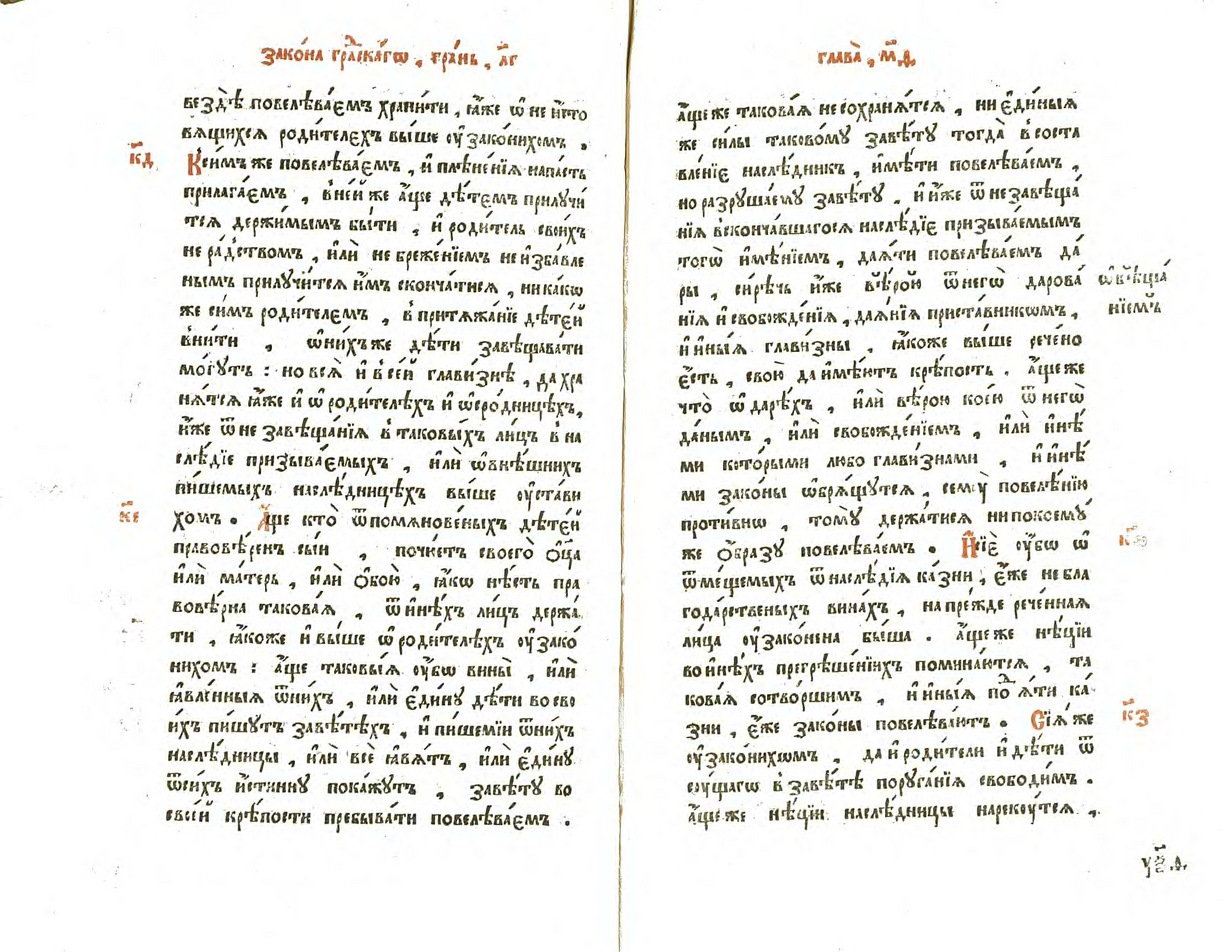 Зако́на гра́дскагѡ , гра́нь , л҃г
вездѣ̀ повелѣва́емъ храни́ти , ꙗ҆́же ѡ҆ не и҆́сто
вѧщихсѧ роди́телехъ вы́ше оу҆зако́нихомъ .
к҃д
К си́мъ же повелѣва́емъ , и҆ плѣне́нїѧ напа́сть
прилага́емъ , в не́й же а҆́ще дѣ́темъ прилучи́
тсѧ держи́мымъ бы́ти , и҆ роди́тель свои́хъ
не ра́дствомъ , и҆лѝ не бреже́нїемъ не и҆зба́вле
нымъ прилучи́тсѧ и҆̀мъ сконча́тисѧ , никакѡ
же си́мъ роди́телемъ , в притѧжа́нїе дѣте́й
вни́ти , ѡ҆ ни́хъ же дѣ́ти завѣщава́ти
мо́гутъ : но всѧ̀ и҆ в се́й глави́знѣ , да хра
нѧ́тсѧ ꙗ҆́же и҆ ѡ҆ роди́телѣхъ и҆ ѡ҆ сро́дницѣхъ,
и҆́же ѿ не завѣща́нїѧ в таковы́хъ ли́цъ в на
слѣ́дїе призыва́емыхъ , и҆лѝ ѡ҆ внѣ́шнихъ
пи́шемыхъ наслѣ́дницѣхъ вы́ше оу҆ста́ви
к҃е
хомъ . А҆́ще кто̀ ѿ помѧнове́ныхъ дѣте́й
правовѣ́ренъ сы́й , почи́етъ своего̀ ѻ҆ц҃а
и҆лѝ ма́терь , и҆лѝ ѻ҆бою̀ , ꙗ҆́кѡ нѣ́сть пра
вовѣ́рна такова́ѧ , ѿ и҆нѣ́хъ ли́цъ держа́
ти , ꙗ҆́коже и҆ вы́ше ѡ҆ роди́телѣхъ оу҆зако́
нихомъ : а҆́ще таковы́ѧ оу҆́бѡ вины̀ , и҆лѝ
ꙗ҆вле́нныѧ ѿ ни́хъ , и҆лѝ є҆ди́ну дѣ́ти во сво
и҆́хъ пи́шутъ завѣ́тѣхъ , и҆ пи́шемїи ѿ ни́хъ
наслѣ́дницы , и҆лѝ всѐ ꙗ҆вѧ́тъ , и҆лѝ є҆ди́ну
ѿ си́хъ и҆́стинну пока́жутъ , завѣ́ту во
свое́й крѣ́пости пребыва́ти повелѣва́емъ .
глава̀ , м҃ѳ.
а҆́ще же такова́ѧ не сохранѧ́тсѧ , ни є҆ди́ныѧ
же си́лы таково́му завѣ́ту тогда̀ в соста
вле́нїе наслѣ́дникъ , и҆мѣ́ти повелѣва́емъ ,
но разруша́ему завѣ́ту , и҆ и҆́же ѿ не завѣща́
нїѧ в сконча́вшагосѧ наслѣ́дїе призыва́емымъ
тогѡ̀ и҆мѣ́нїемъ , даѧ́ти повелѣва́емъ да́
ры , си́рѣчь и҆́же вѣ́рою ѿ негѡ̀ дарова́
ѡ҆бѣща́
нїемъ
нїѧ и҆ свобожде́нїѧ , даѧ́нїѧ приста́вникѡмъ ,
и҆ и҆ны́ѧ глави́зны , ꙗ҆́коже вы́ше рече́но
є҆́сть , свою̀ да и҆мѣ́ютъ крѣ́пость . а҆́ще же
что̀ ѡ҆ да́рѣхъ , и҆лѝ вѣ́рою кое́ю ѿ негѡ̀
да́нымъ , и҆лѝ свобожде́нїемъ , и҆лѝ и҆нѣ́
ми кото́рыми любо глави́знами , и҆ и҆нѣ́
ми зако́ны ѡ҆брѧ́щутсѧ , сему̀ повелѣ́нїю
проти́внѡ , тому̀ держа́тисѧ ни по коему́
к҃ѕ
же ѻ҆́бразу повелѣва́емъ . И҆ сїѐ оу҆́бѡ ѡ҆
ѿме́щемыхъ ѿ наслѣ́дїѧ ка́зни , є҆́же не бла
года́рственыхъ вина́хъ , на пре́жде рече́нная
ли́ца оу҆зако́нена бы́ша . а҆́ще же нѣ́цїи
во и҆нѣ́хъ прегрѣше́нїихъ помина́ютсѧ , та
кова́ѧ сотво́ршимъ , и҆ и҆ны́ѧ под̾ѧ́ти ка́
к҃з
зни , є҆́же зако́ны повелѣва́ютъ . Сїѧ̑ же
оу҆зако́нихѡмъ , да и҆ роди́тели и҆ дѣ́ти ѿ
су́щагѡ в завѣ́тѣ поруга́нїѧ свободи́мъ .
а҆́ще же нѣ́цїи наслѣ́дницы нареку́тсѧ ,